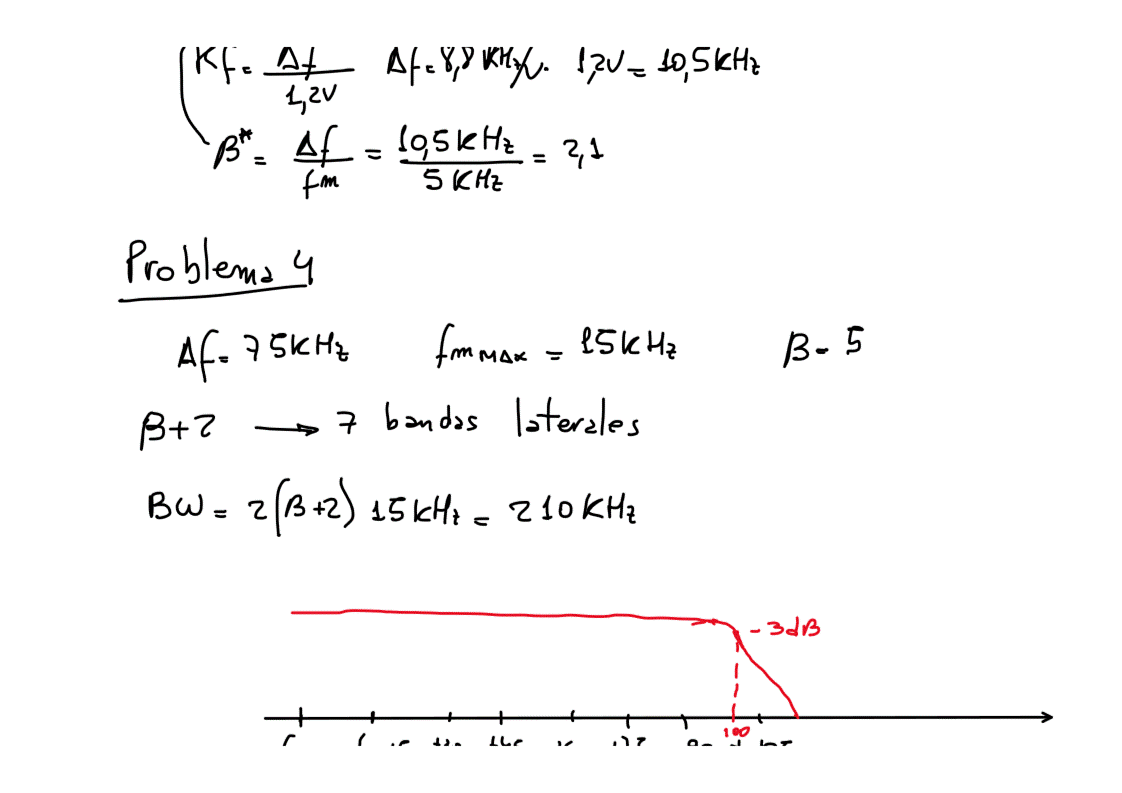 Kf = Δf / 1,2V Δf = 8,8 KHz/V · 1,2V = 10,5 KHz
β* = Δf / fm = 10,5 KHz / 5 KHz = 2,1
Problema 4
Δf = 75 KHz fm MAX = 15 KHz β = 5
β+2 → 7 bandas laterales
BW = 2(β+2) 15 KHz = 210 KHz
-3dB
100